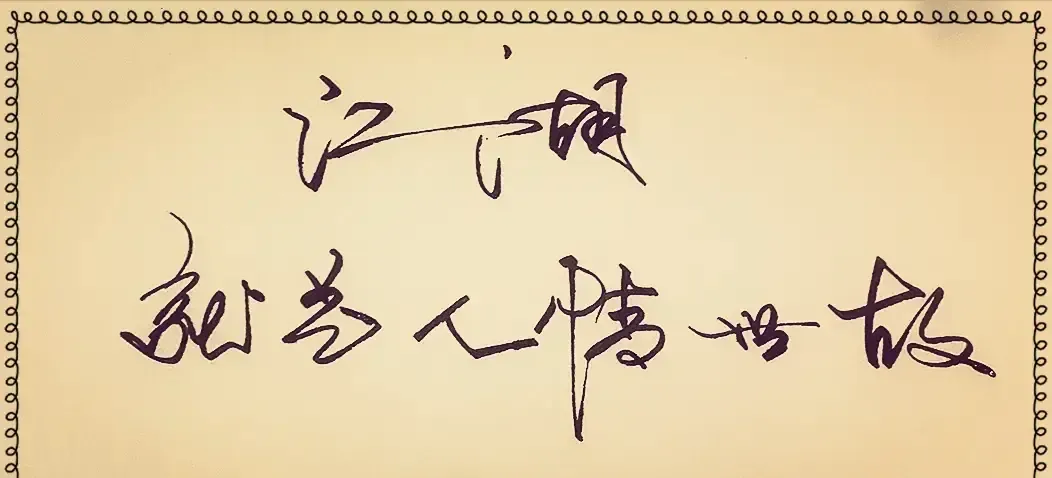 江湖
就是人情世故